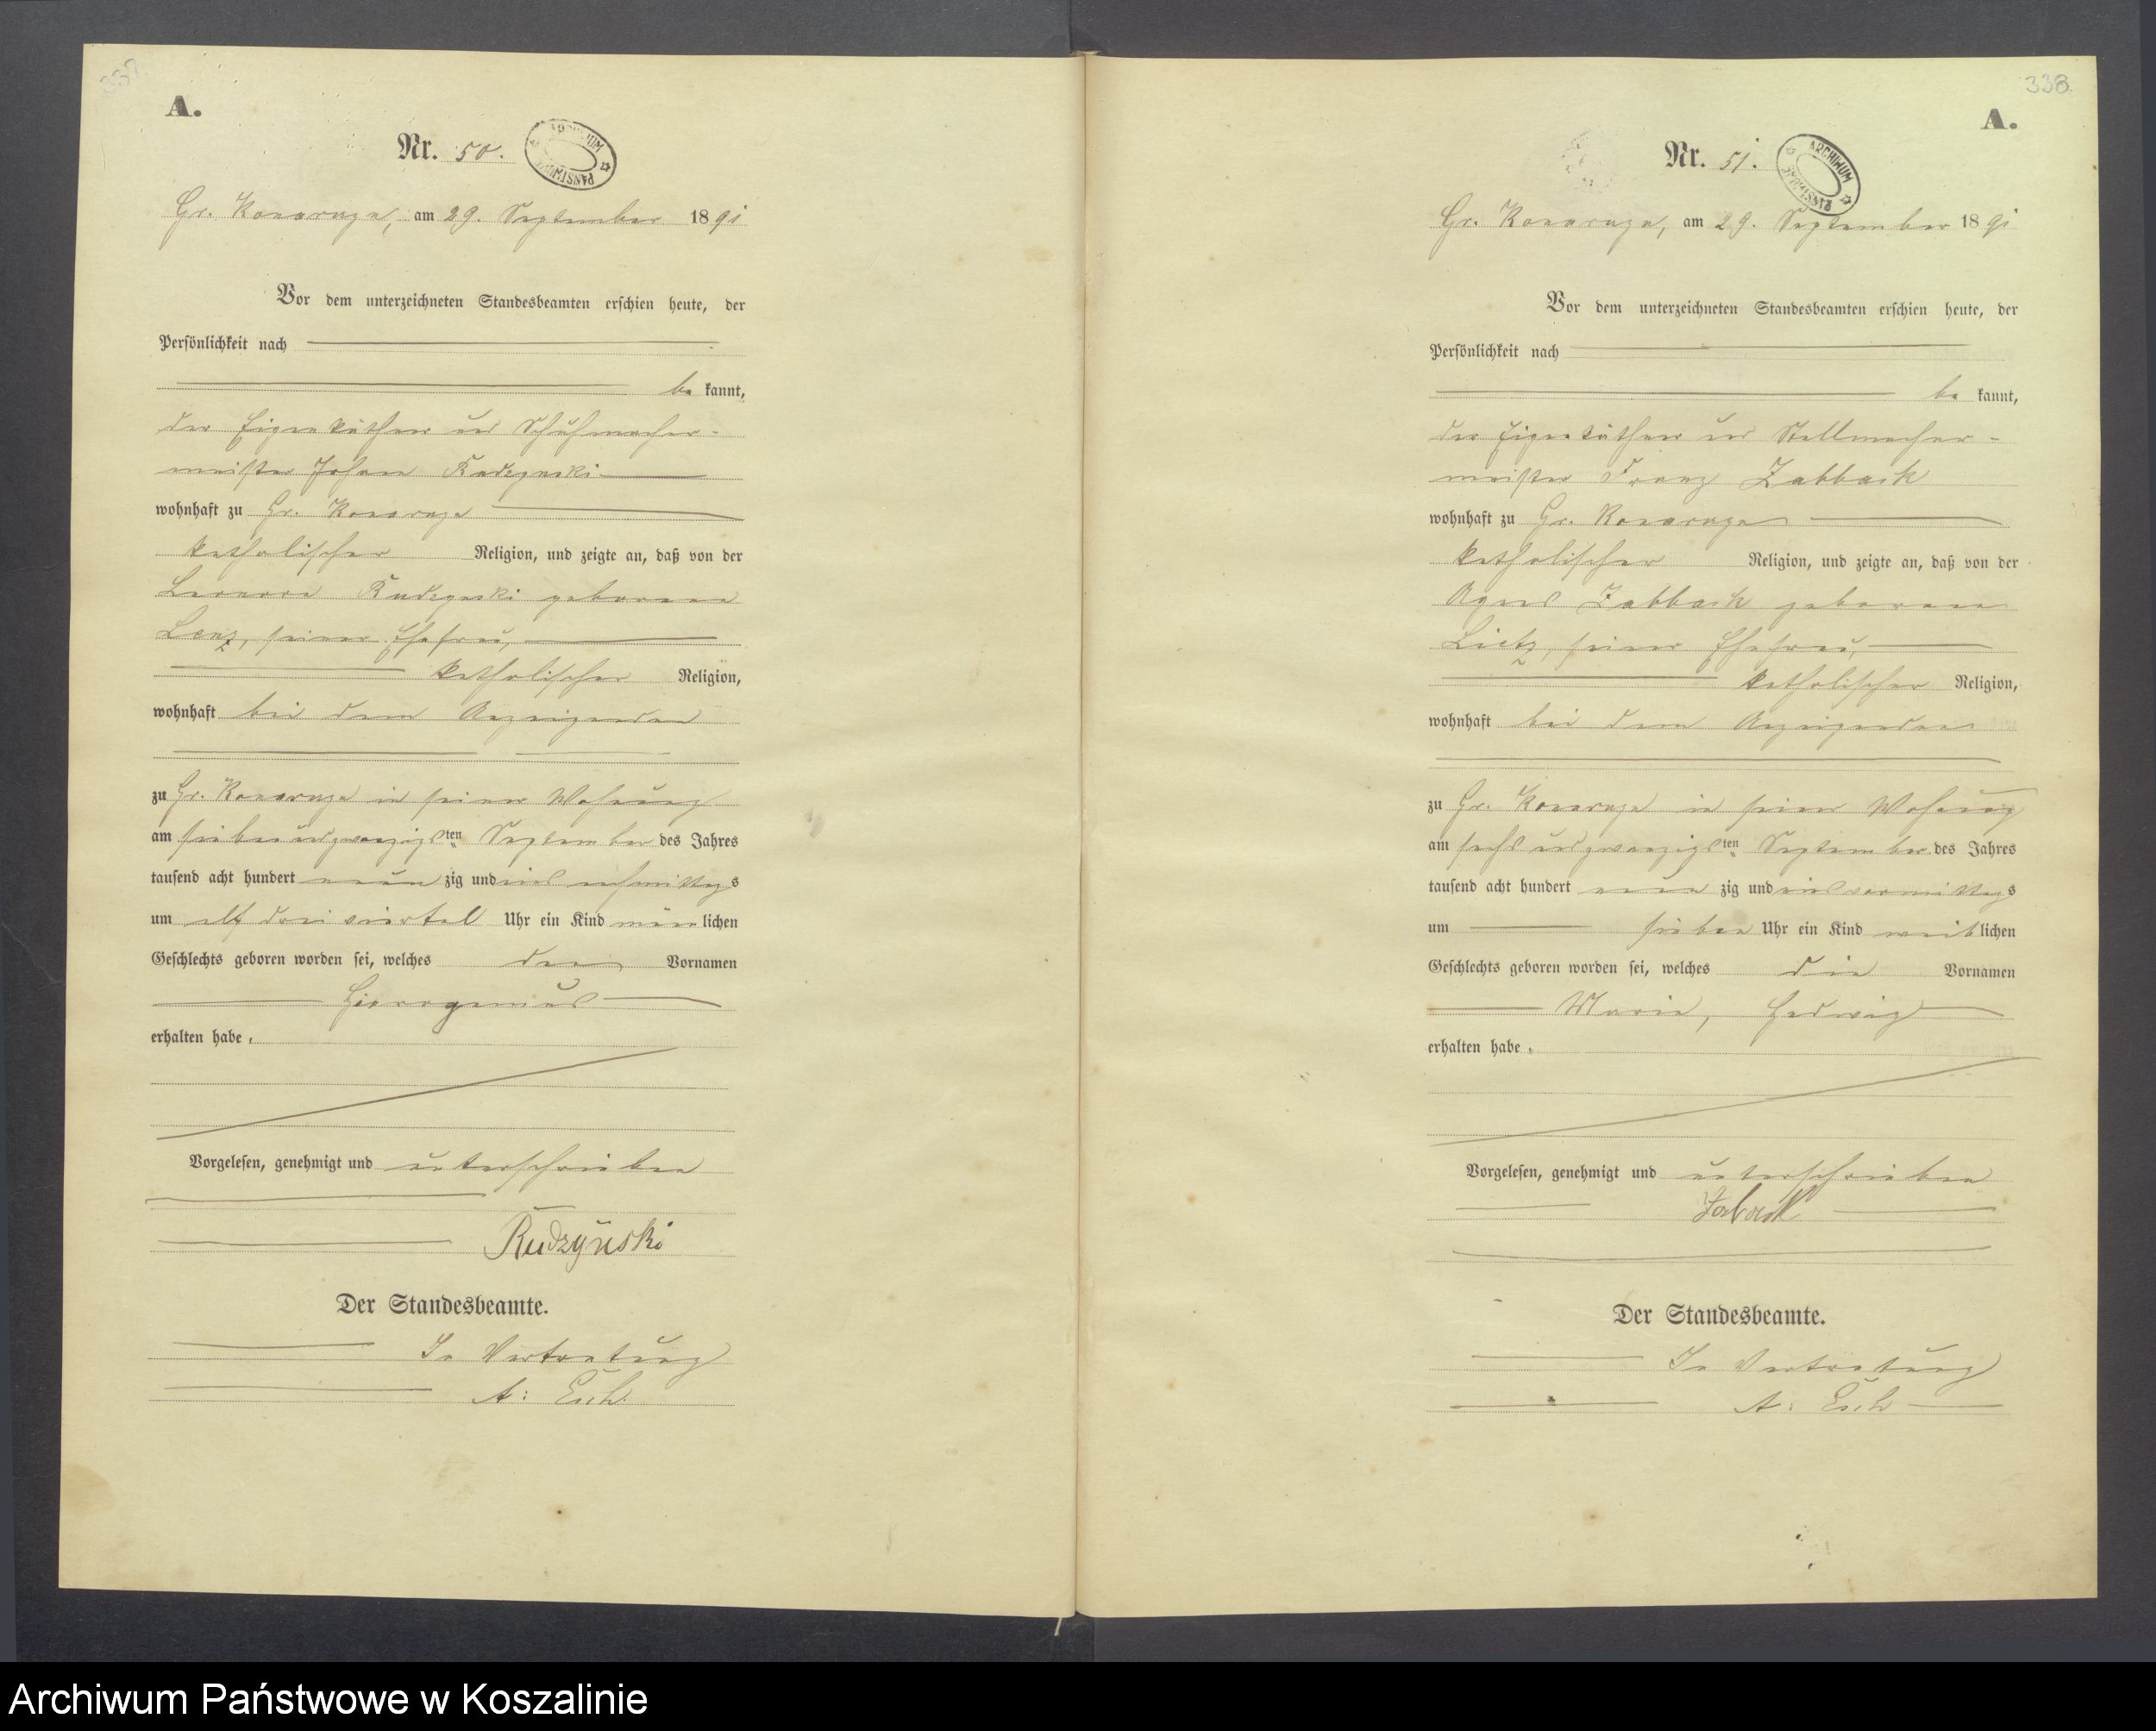 337
A.
Nr. 50.
ARCHIWUM PAŃSTWOWE
Gr. Konarczyn, am 29. September 1891
Vor dem unterzeichneten Standesbeamten erschien heute, der
Persönlichkeit nach
be kannt,
der Eigenkäthner und Schuhmacher-
meister Johann Rudzynski
wohnhaft zu Gr. Konarczyn
katholischer Religion, und zeigte an, daß von der
Leonora Rudzynski geborene
Lenz, seiner Ehefrau,
katholischer Religion,
wohnhaft bei dem Anzeigenden
zu Gr. Konarczyn in seiner Wohnung
am siebenundzwanzigsten September des Jahres
tausend acht hundert neunzig und eins nachmittags
um elf dreiviertel Uhr ein Kind männlichen
Geschlechts geboren worden sei, welches den Vornamen
Hieronymus
erhalten habe.
Vorgelesen, genehmigt und unterschrieben
Rudzyński
Der Standesbeamte.
In Vertretung
A:
338
A.
Nr. 51.
ARCHIWUM PAŃSTWOWE
Gr. Konarczyn, am 29. September 1891
Vor dem unterzeichneten Standesbeamten erschien heute, der
Persönlichkeit nach
be kannt,
der Eigenkäthner und Stellmacher-
meister Franz Zabback
wohnhaft zu Gr. Konarczyn
katholischer Religion, und zeigte an, daß von der
Agnes Zabback geborene
Lietz, seiner Ehefrau,
katholischer Religion,
wohnhaft bei dem Anzeigenden
zu Gr. Konarczyn in seiner Wohnung
am sechsundzwanzigsten September des Jahres
tausend acht hundert neunzig und eins vormittags
um sieben Uhr ein Kind weiblichen
Geschlechts geboren worden sei, welches die Vornamen
Marie, Hedwig
erhalten habe.
Vorgelesen, genehmigt und unterschrieben
Der Standesbeamte.
In Vertretung
A:
Archiwum Państwowe w Koszalinie